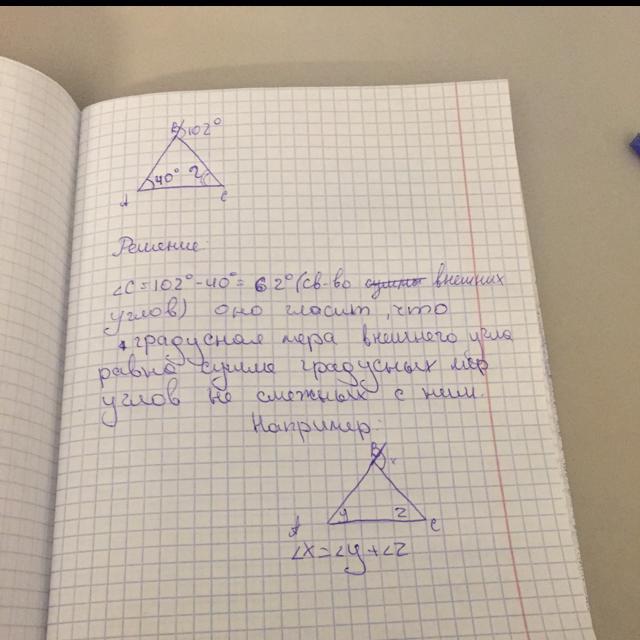 B 102°
40° ?
A C
Решение
∠C=102°-40°=62° (св-во суммы внешних
углов) оно гласит, что
градусная мера внешнего угла
равна сумме градусных мер
углов не смежных с ним.
Например:
B x
y z
A C
∠x=∠y+∠z